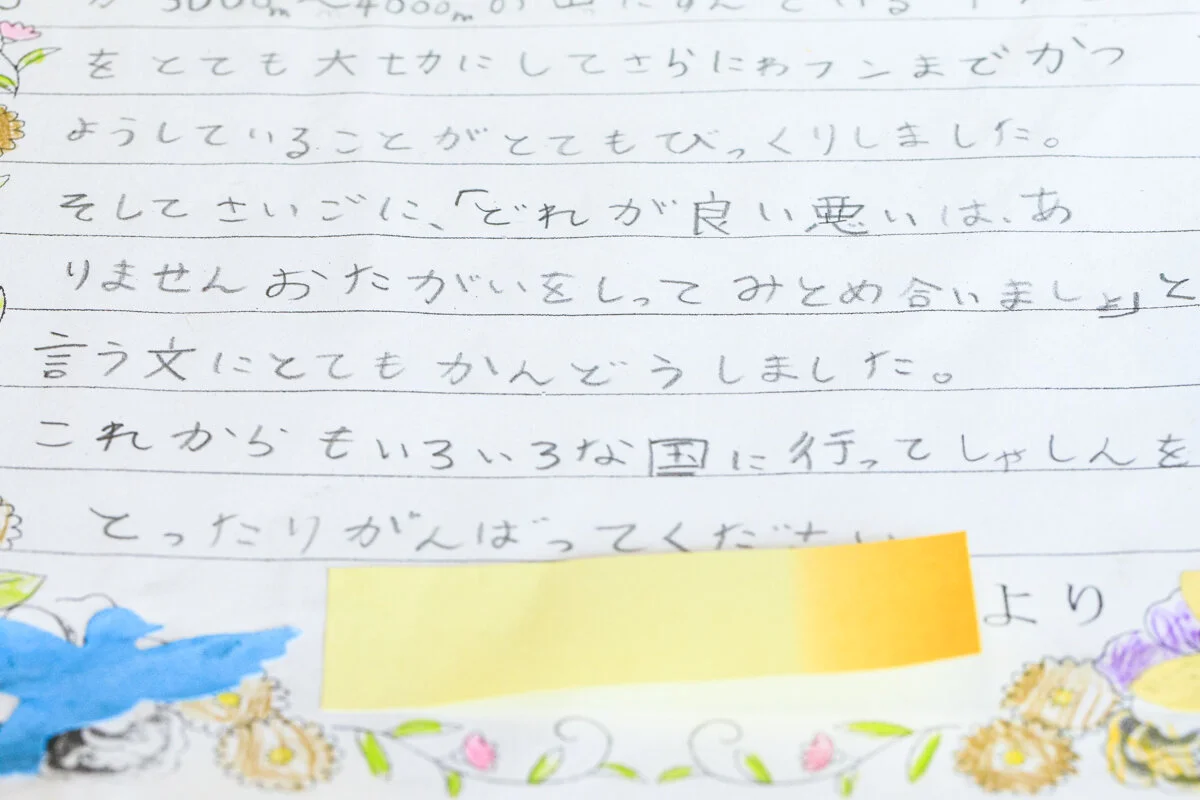 3000m〜4000mの山にすんでいる
をとても大切にしてさらにわフンまでかつ
ようしていることがとてもびっくりしました。
そしてさいごに、「どれが良い悪いは、あ
りませんおたがいをしってみとめ合いましょう」と
言う文にとてもかんどうしました。
これからもいろいろな国に行ってしゃしんを
とったりがんばってください
より